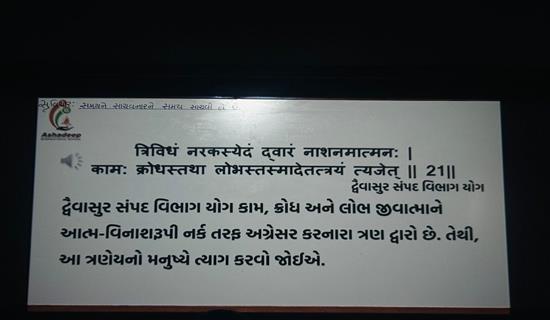 સુવિચાર: સમયને સાચવનારને સમય સાચવી લે છે
Ashadeep
त्रिविधं नरकस्येदं द्वारं नाशनमात्मनः |
कामः क्रोधस्तथा लोभस्तस्मादेतत्त्रयं त्यजेत् || 21||
દ્વૈવાસુર સંપદ વિભાગ યોગ
દ્વૈવાસુર સંપદ વિભાગ યોગ કામ, ક્રોધ અને લોભ જીવાત્માને
આત્મ-વિનાશરૂપી નર્ક તરફ અગ્રેસર કરનારા ત્રણ દ્વારો છે. તેથી,
આ ત્રણેયનો મનુષ્યે ત્યાગ કરવો જોઈએ.